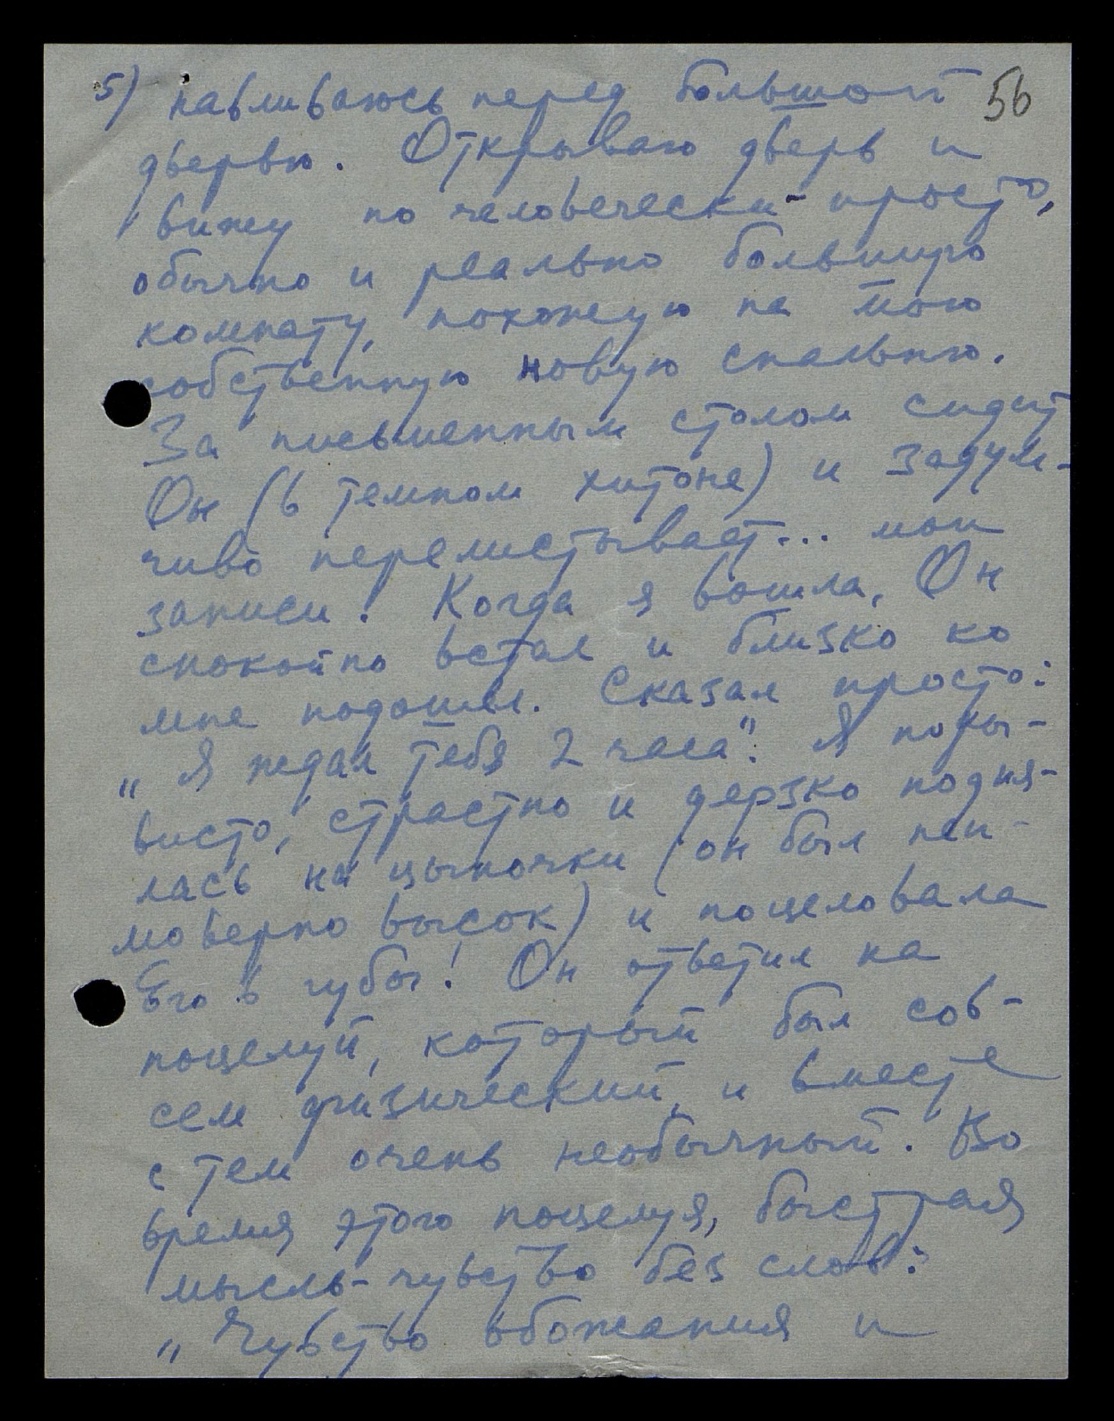 5) навливаюсь перед большой 56
дверью. Открываю дверь и
вижу по человечески-просто,
обычно и реально большую
комнату, похожую на мою
собственную новую спальню.
За письменным столом сидит
Он (в темном хитоне) и задум-
чиво перелистывает... мои
записи! Когда я вошла, Он
спокойно встал и близко ко
мне подошел. Сказал просто:
"Я ждал тебя 2 часа". Я поры-
висто, страстно и дерзко подня-
лась на цыпочки (он был неи-
моверно высок) и поцеловала
Его в губы! Он ответил на
поцелуй, который был сов-
сем физический, и вместе
с тем очень необычный. Во
время этого поцелуя, быстрая
мысль-чувство без слов:
"Чувство обожания и